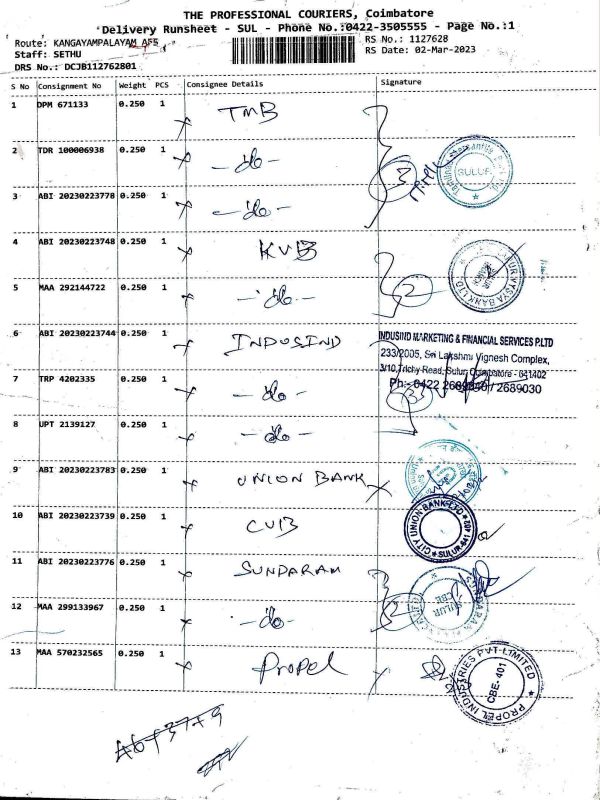 THE PROFESSIONAL COURIERS, Coimbatore
Delivery Runsheet - SUL - Phone No.:0422-3505555 - Page No.:1
Route: KANGAYAMPALAYAM AFS
RS No.: 1127628
Staff: SETHU
RS Date: 02-Mar-2023
DRS No.: DCJB112762801
S No Consignment No Weight PCS Consignee Details Signature
1 DPM 671133 0.250 1 TMB
2 TDR 100006938 0.250 1 -do-
SULUR
3 ABI 20230223778 0.250 1 -do-
3
4 ABI 20230223748 0.250 1 KVB
5 MAA 292144722 0.250 1 -do-
2
6 ABI 20230223744 0.250 1 INDUSIND
INDUSIND MARKETING & FINANCIAL SERVICES P.LTD
233/2005, Sri Lakshmi Vignesh Complex,
3/10, Trichy Road, Sulur, Coimbatore - 641402
Ph:- 0422 2689040 / 2689030
7 TRP 4202335 0.250 1 -do-
3
8 UPT 2139127 0.250 1 -do-
9 ABI 20230223783 0.250 1 UNION BANK
10 ABI 20230223739 0.250 1 CUB
CITY UNION BANK LTD
SULUR-641 402
11 ABI 20230223776 0.250 1 SUNDARAM
12 MAA 299133967 0.250 1 -do-
2
SULUR
CBE
13 MAA 570232565 0.250 1 Propel
PROPEL INDUSTRIES PVT LIMITED
CBE- 401